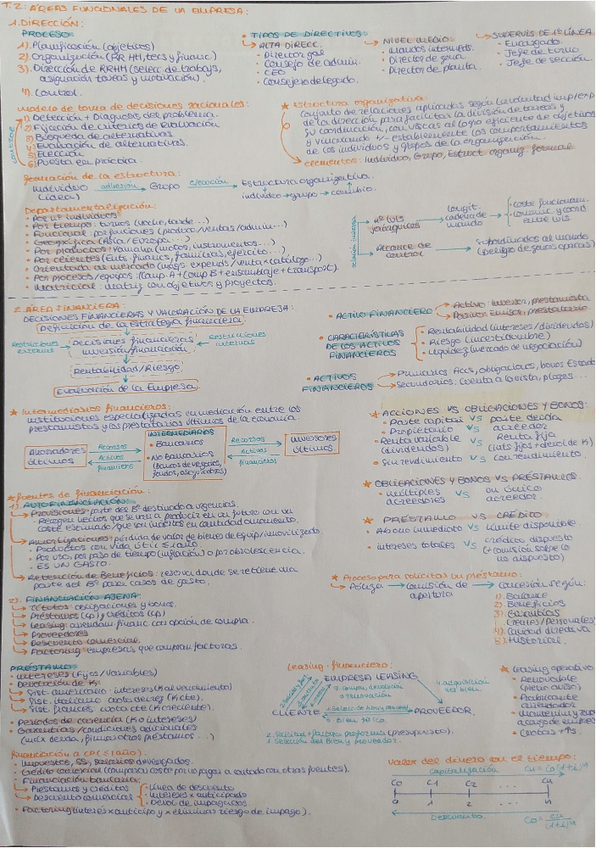 T.2: ÁREAS FUNCIONALES DE LA EMPRESA:
1. DIRECCIÓN:
PROCESO:
1) Planificación (objetivos)
2) Organización (RRHH, tecs y financ.)
3) Dirección de RRHH (selec. de trabajs,
asignación tareas y motivación).
4) Control.
* TIPOS DE DIRECTIVOS
ALTA DIRECC.
• Director gral
• Consejo de admin.
• CEO
• Consejero delegado.
NIVEL MEDIO:
• Mandos intermeds.
• Director de zona.
• Director de planta.
SUPERVIS DE 1ª LÍNEA
• Encargado.
• Jefe de turno
• Jefe de sección.
Modelo de toma de decisiones racionales:
1) Detección + Diagnos. del problema.
2) Fijación de criterios de evaluación
3) Búsqueda de alternativas.
4) Evaluación de alternativas.
5) Elección
6) Puesta en práctica
* Estructura organizativa:
Conjunto de relaciones aplicadas según la voluntad imp/exp
de la dirección para facilitar la división de tareas y
su coordinación, con vistas al logro eficiente de objetivos
y vinculando establemente los comportamientos
de los individuos y grupos de la organización.
elementos: Individuo, Grupo, Estruct. organiz. formal
Formación de la estructura:
Individuo (idea) adhesión Grupo creación Estructura organizativa.
individuo + grupo + cambio.
Departamentalización:
• Por nº individuos
• Por tiempo: turnos (noche, tarde...)
• Funcional: por funciones (produc/ventas/admin...)
• Geográfica (Asia/Europa...)
• Por productos: Yamaha (motos, instrumentos...)
• Por clientes (Ents. financs, familias, ejército...)
• Orientada al mercado (máqs expends/venta x catálogo...)
• Por procesos/equipos: (Comp. A + Comp B + ensamblaje + transport).
• Matricial: matriz con objetivos y proyectos.
nº lvls jerárquicos
longit. cadena de mando
Alcance de control
subordinados al mando
(peligro de grupos opacos)
2. ÁREA FINANCIERA:
DECISIONES FINANCIERAS Y VALORACIÓN DE LA EMPRESA:
Definición de la estrategia financiera
Restricciones externas
Decisiones financieras
inversión/financiación.
Restricciones internas
Rentabilidad/Riesgo
Evaluación de la Empresa
• ACTIVO FINANCIERO
Activo: inversor, prestamista
Pasivo: emisor, prestatario
• CARACTERÍSTICAS
DE LOS ACTIVOS
FINANCIEROS
• Rentabilidad (intereses/dividendos)
• Riesgo (incertidumbre)
• Liquidez (mercado de negociación)
• ACTIVOS
FINANCIEROS
Primarios: Accs, obligaciones, bonos Estado
Secundarios: Cuenta a la vista, plazos...
* Intermediarios financieros:
Instituciones especializadas en mediación entre los
prestamistas y los prestatarios últimos de la economía
AHORRADORES ÚLTIMOS
Recursos
Activos financieros
INTERMEDIARIOS
• Bancarios
• No bancarios
(bancos de negocios, fondos, aseguradoras)
Recursos
Activos financieros
INVERSORES ÚLTIMOS.
* ACCIONES VS OBLIGACIONES Y BONOS:
• Parte capital VS parte deuda
• Propietario VS acreedor
• Renta variable (dividendos) VS Renta fija
(ints fijos + devol de K)
• Sin rendimiento VS con rendimiento.
* OBLIGACIONES Y BONOS VS PRÉSTAMOS.
• múltiples acreedores VS un único acreedor.
* PRÉSTAMO VS CRÉDITO
• Abono inmediato VS límite disponible
• intereses totales VS crédito dispuesto
(+ comisión sobre lo no dispuesto)
* Fuentes de financiación:
1) AUTOFINANCIACIÓN:
• Provisiones: parte del Bº destinado a urgencias
• Recogen hechos que se van a producir en un futuro con un
coste estimado que son inciertos en cantidad o momento.
• Amortizaciones: pérdida de valor de bienes de equipo/inmovilizado.
• Productos con vida útil ≥ 1 año
• Por uso, por paso de tiempo (inflación) o por obsolescencia.
• ES UN GASTO.
• Retención de Beneficios: reserva donde se retiene una
parte del Bº para casos de gasto.
2) FINANCIACIÓN AJENA:
• Títulos: obligaciones y bonos.
• Préstamos (Lp) y créditos (cp)
• Leasing: arrendam. financ. con opción de compra.
• Proveedores
• Descuento comercial.
• Factoring: empresas que compran facturas.
* Proceso para solicitar un préstamo:
• Póliza → Comisión de apertura → Concesión según:
1) Balance
2) Beneficios
3) Garantías
(reales/personales)
4) Calidad directiva
5) Historial.
PRÉSTAMO:
• Intereses (Fijos/Variables)
• Devolución de K:
• Sist. americano: intereses (K al vencimiento)
• Sist. italiano: cuota decrec (K cte).
• Sist. francés: cuota cte (K creciente).
• Períodos de carencia (K o intereses)
• Garantías/condiciones adicionales
(máx deuda, firmar otros préstamos...)
Leasing financiero:
EMPRESA LEASING
CLIENTE
PROVEEDOR.
4. adquisición del bien
* Leasing operativo
• Renovable
(previo aviso)
• Fabricante
• Mantenimiento y
a cargo de empresa
• Cuotas +↑s.
Financiación a CP (≤ 1 año):
• Impuestos, SS, salarios devengados.
• Crédito comercial (comparar coste por no pagar al contado con otras fuentes).
• Financiación bancaria:
• Préstamos y créditos
• Descuento comercial
• Línea de descuento
• Intereses x anticipado
• Devol. de impagados
• Factoring (interés x anticipo y x eliminar riesgo de impago).
Valor del dinero en el tiempo:
Capitalización Cn = C0 (1+i)^n
C0 C1 C2 ... Cn
0 1 2 n
Descuento. C0 = Cn/(1+i)^n